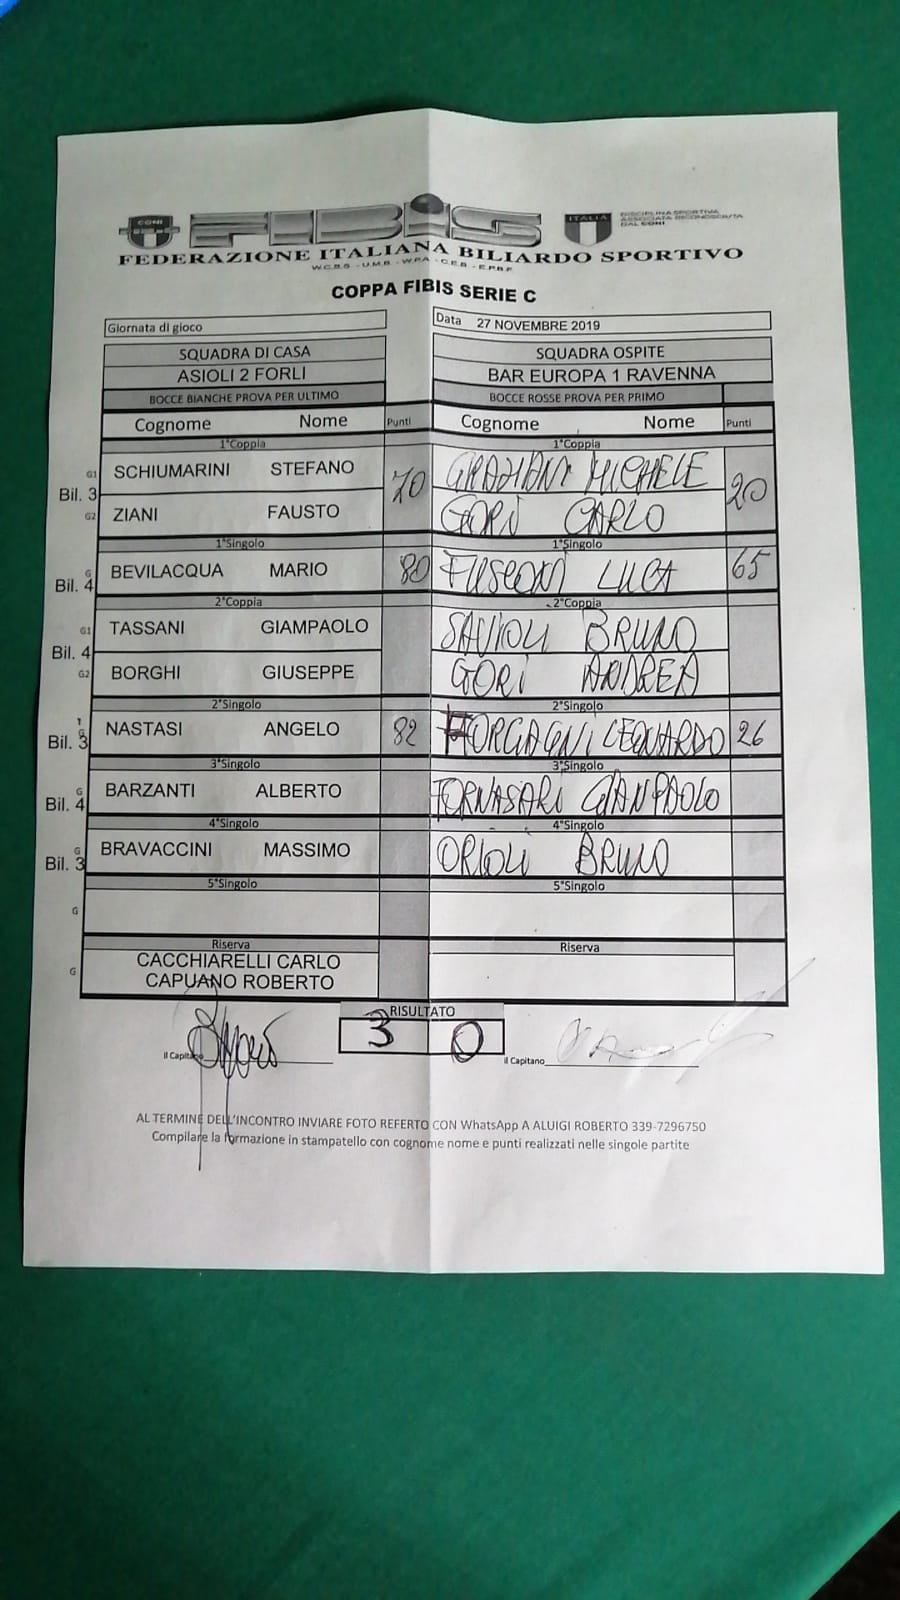 CONI
FIBIS
ITALIA
DISCIPLINA SPORTIVA
ASSOCIATA RICONOSCIUTA
DAL CONI
FEDERAZIONE ITALIANA BILIARDO SPORTIVO
W.C.B.S - U.M.B - W.P.A - C.E.B - E.P.B.F
COPPA FIBIS SERIE C
Giornata di gioco Data 27 NOVEMBRE 2019
SQUADRA DI CASA SQUADRA OSPITE
ASIOLI 2 FORLI BAR EUROPA 1 RAVENNA
BOCCE BIANCHE PROVA PER ULTIMO BOCCE ROSSE PROVA PER PRIMO
Cognome Nome Punti Cognome Nome Punti
1°Coppia 1°Coppia
G1 SCHIUMARINI STEFANO GRAZIANI MICHELE
Bil. 3 70 20
G2 ZIANI FAUSTO GORI CARLO
1°Singolo 1°Singolo
G Bil. 4 BEVILACQUA MARIO 80 FUSCONI LUCA 65
2°Coppia 2°Coppia
G1 TASSANI GIAMPAOLO SAVIOLI BRUNO
Bil. 4
G2 BORGHI GIUSEPPE GORI ANDREA
2°Singolo 2°Singolo
Bil. 3 NASTASI ANGELO 82 MORGAGNI LEONARDO 26
3°Singolo 3°Singolo
G Bil. 4 BARZANTI ALBERTO FORNASARI GIANPAOLO
4°Singolo 4°Singolo
G Bil. 3 BRAVACCINI MASSIMO ORIOLI BRUNO
5°Singolo 5°Singolo
G
Riserva Riserva
CACCHIARELLI CARLO
G
CAPUANO ROBERTO
RISULTATO
3 0
il Capitano il Capitano
AL TERMINE DELL'INCONTRO INVIARE FOTO REFERTO CON WhatsApp A ALUIGI ROBERTO 339-7296750
Compilare la formazione in stampatello con cognome nome e punti realizzati nelle singole partite